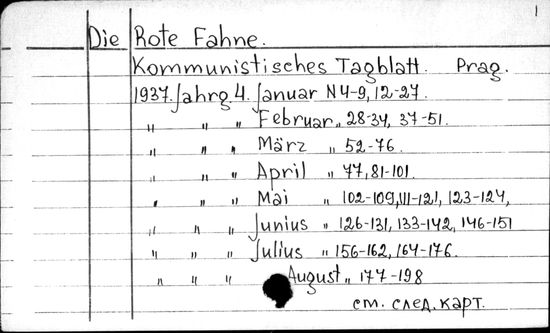 1
Die Rote Fahne.
Kommunistisches Tagblatt. Prag.
1937. Jahrg. 4. Januar N 4-9, 12-27.
" " " Februar " 28-34, 37-51.
" " " März " 52-76.
" " " April " 77, 81-101.
" " " Mai " 102-109, 111-121, 123-124,
" " " Junius " 126-131, 133-142, 146-151
" " " Julius " 156-162, 164-176.
" " " August " 177-198
см. след. карт.